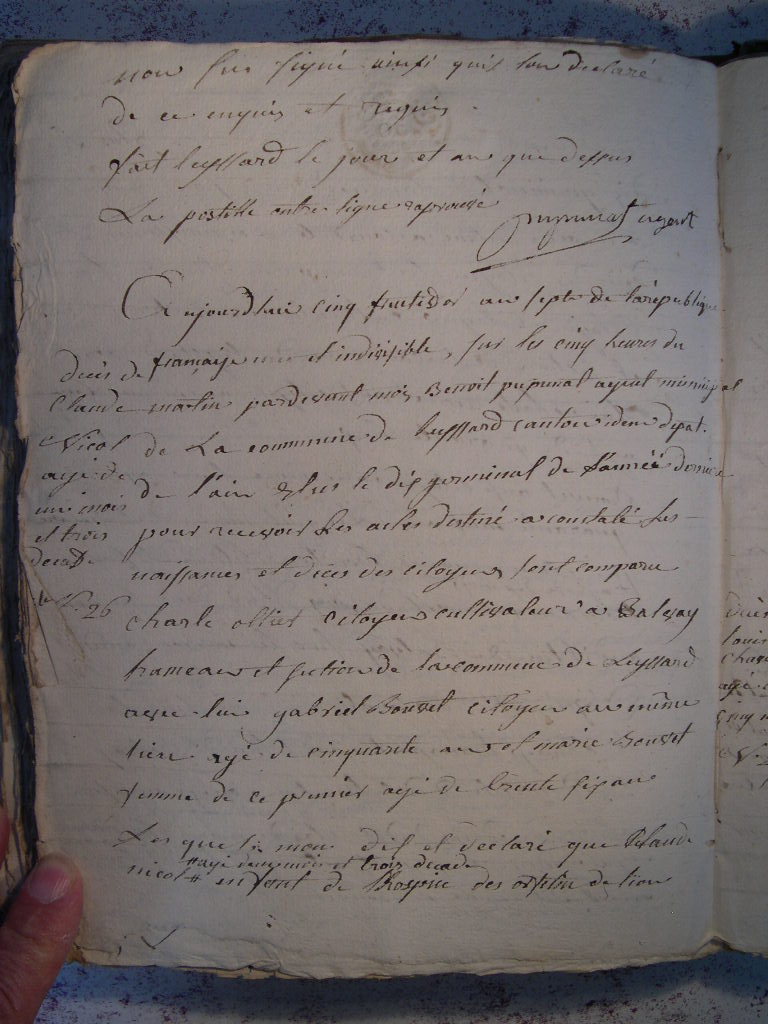 non sus signé ainsi quil lon declaré
de ce enquis et requis.
fait leyssard le jour et an que dessus
La postille entre ligne aprouvé
pupunat agent
Aujourdhui cinq fructidor an sept de la republique
française une et indivisible, sur les cinq heures du
matin pardevant moi Benoit pupunat agent municipal
de La commune de Leyssard canton idem depat.
de l'ain Elus le dix germinal de l'année derniere
pour recevoir les actes destiné a constaté les
naissances et décès des citoyens sont comparu
charle ollier citoyen cultivateur a Balvay
hameau et section de la commune de Leyssard
avec lui gabriel Bouvet citoyen au même
lieu agé de cinquante an et marie Bouvet
femme de ce premier agé de trente six an
Les quels mon dit et declaré que Claude
# agé de un mois et trois decade
nicol # enfent de Lhospice des orfelin de lion
décès de
Claude
Nicol
agé de
un mois
et trois
decade
N. 26
décès
louis
agé
cinq m